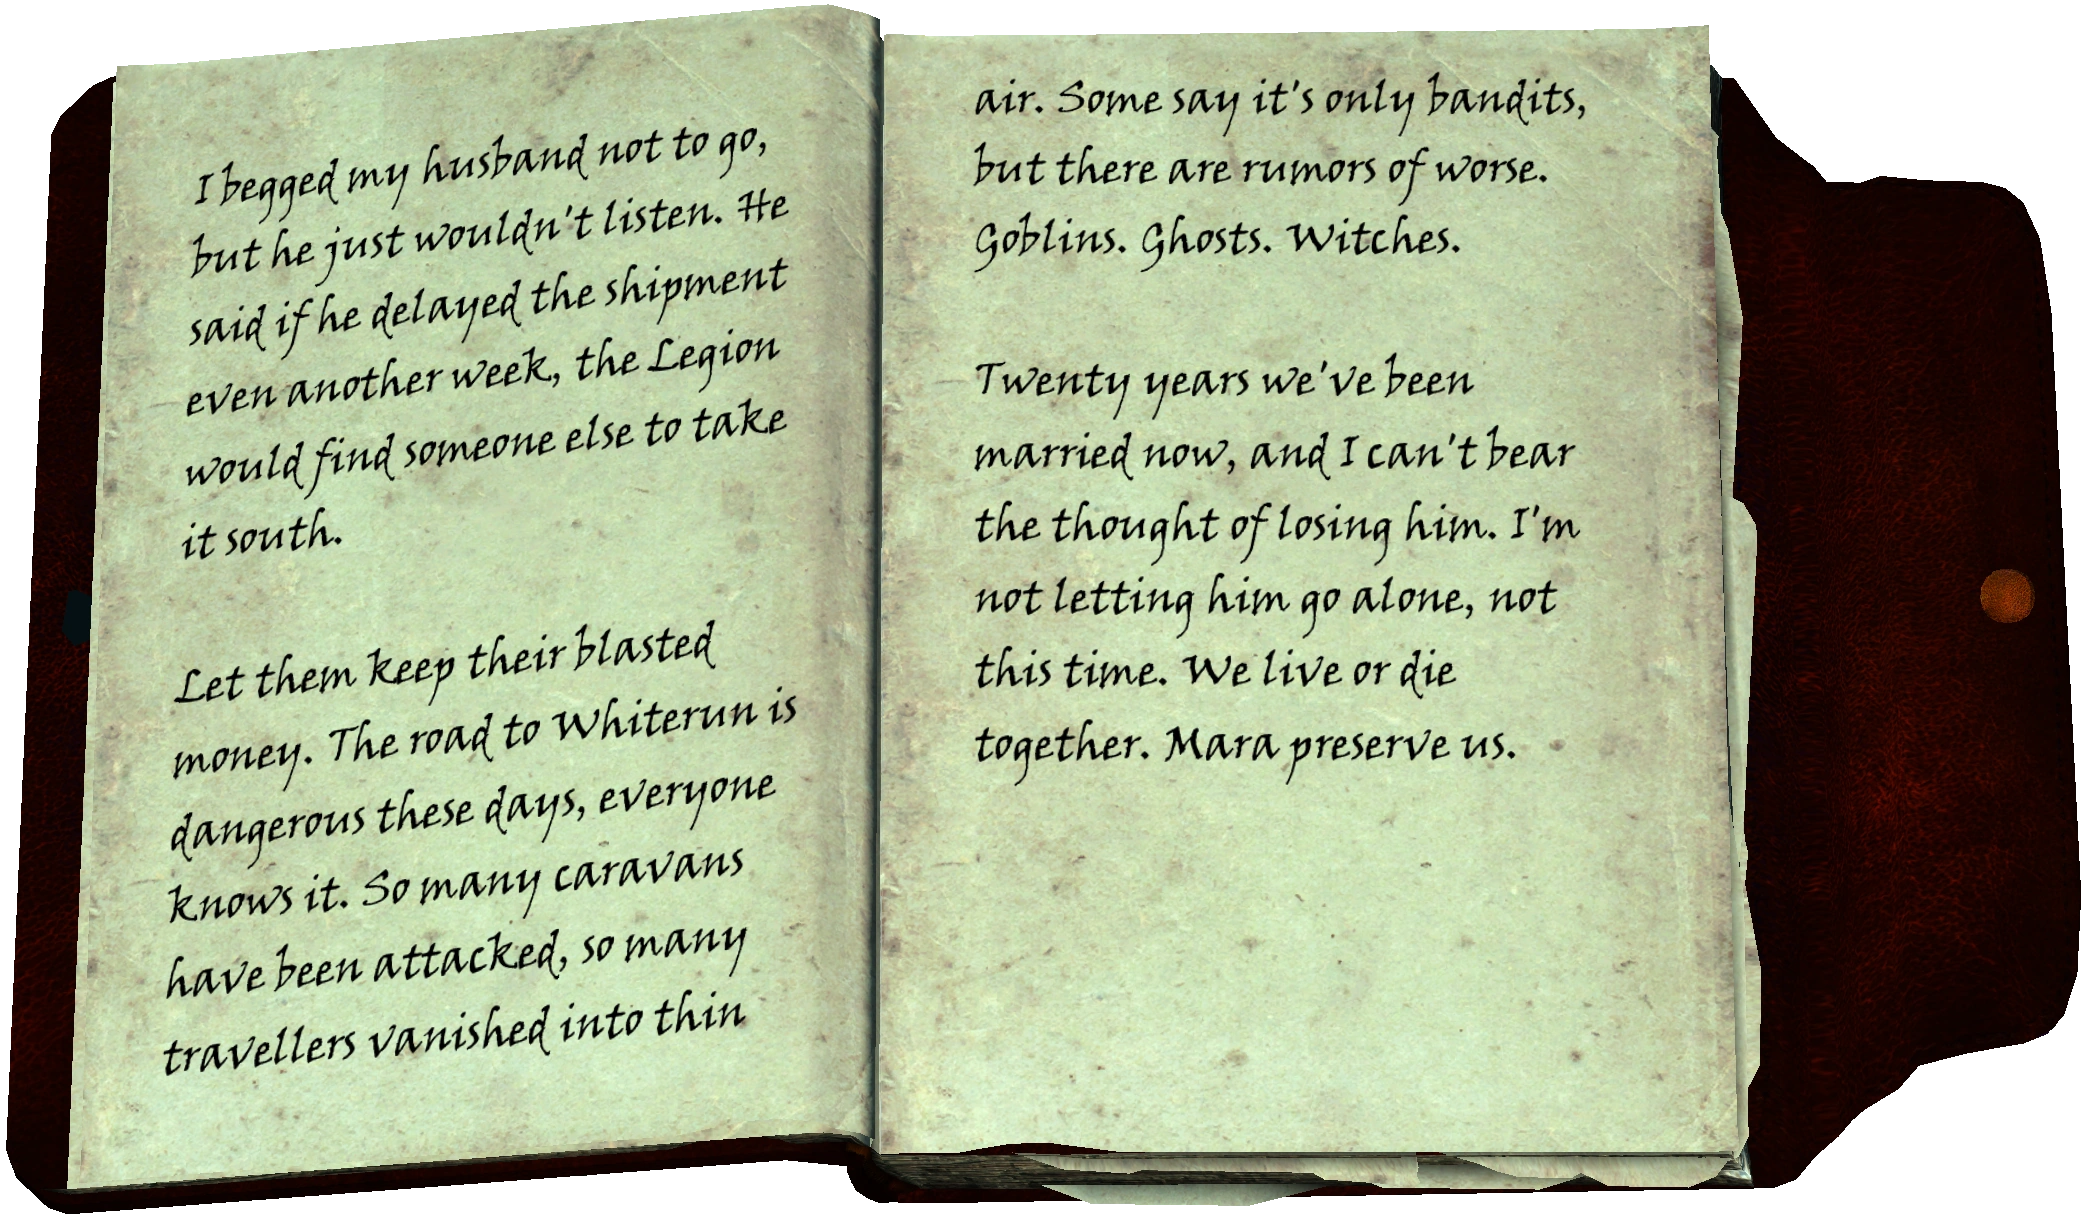 I begged my husband not to go,
but he just wouldn't listen. He
said if he delayed the shipment
even another week, the Legion
would find someone else to take
it south.
Let them keep their blasted
money. The road to Whiterun is
dangerous these days, everyone
knows it. So many caravans
have been attacked, so many
travellers vanished into thin
air. Some say it's only bandits,
but there are rumors of worse.
Goblins. Ghosts. Witches.
Twenty years we've been
married now, and I can't bear
the thought of losing him. I'm
not letting him go alone, not
this time. We live or die
together. Mara preserve us.